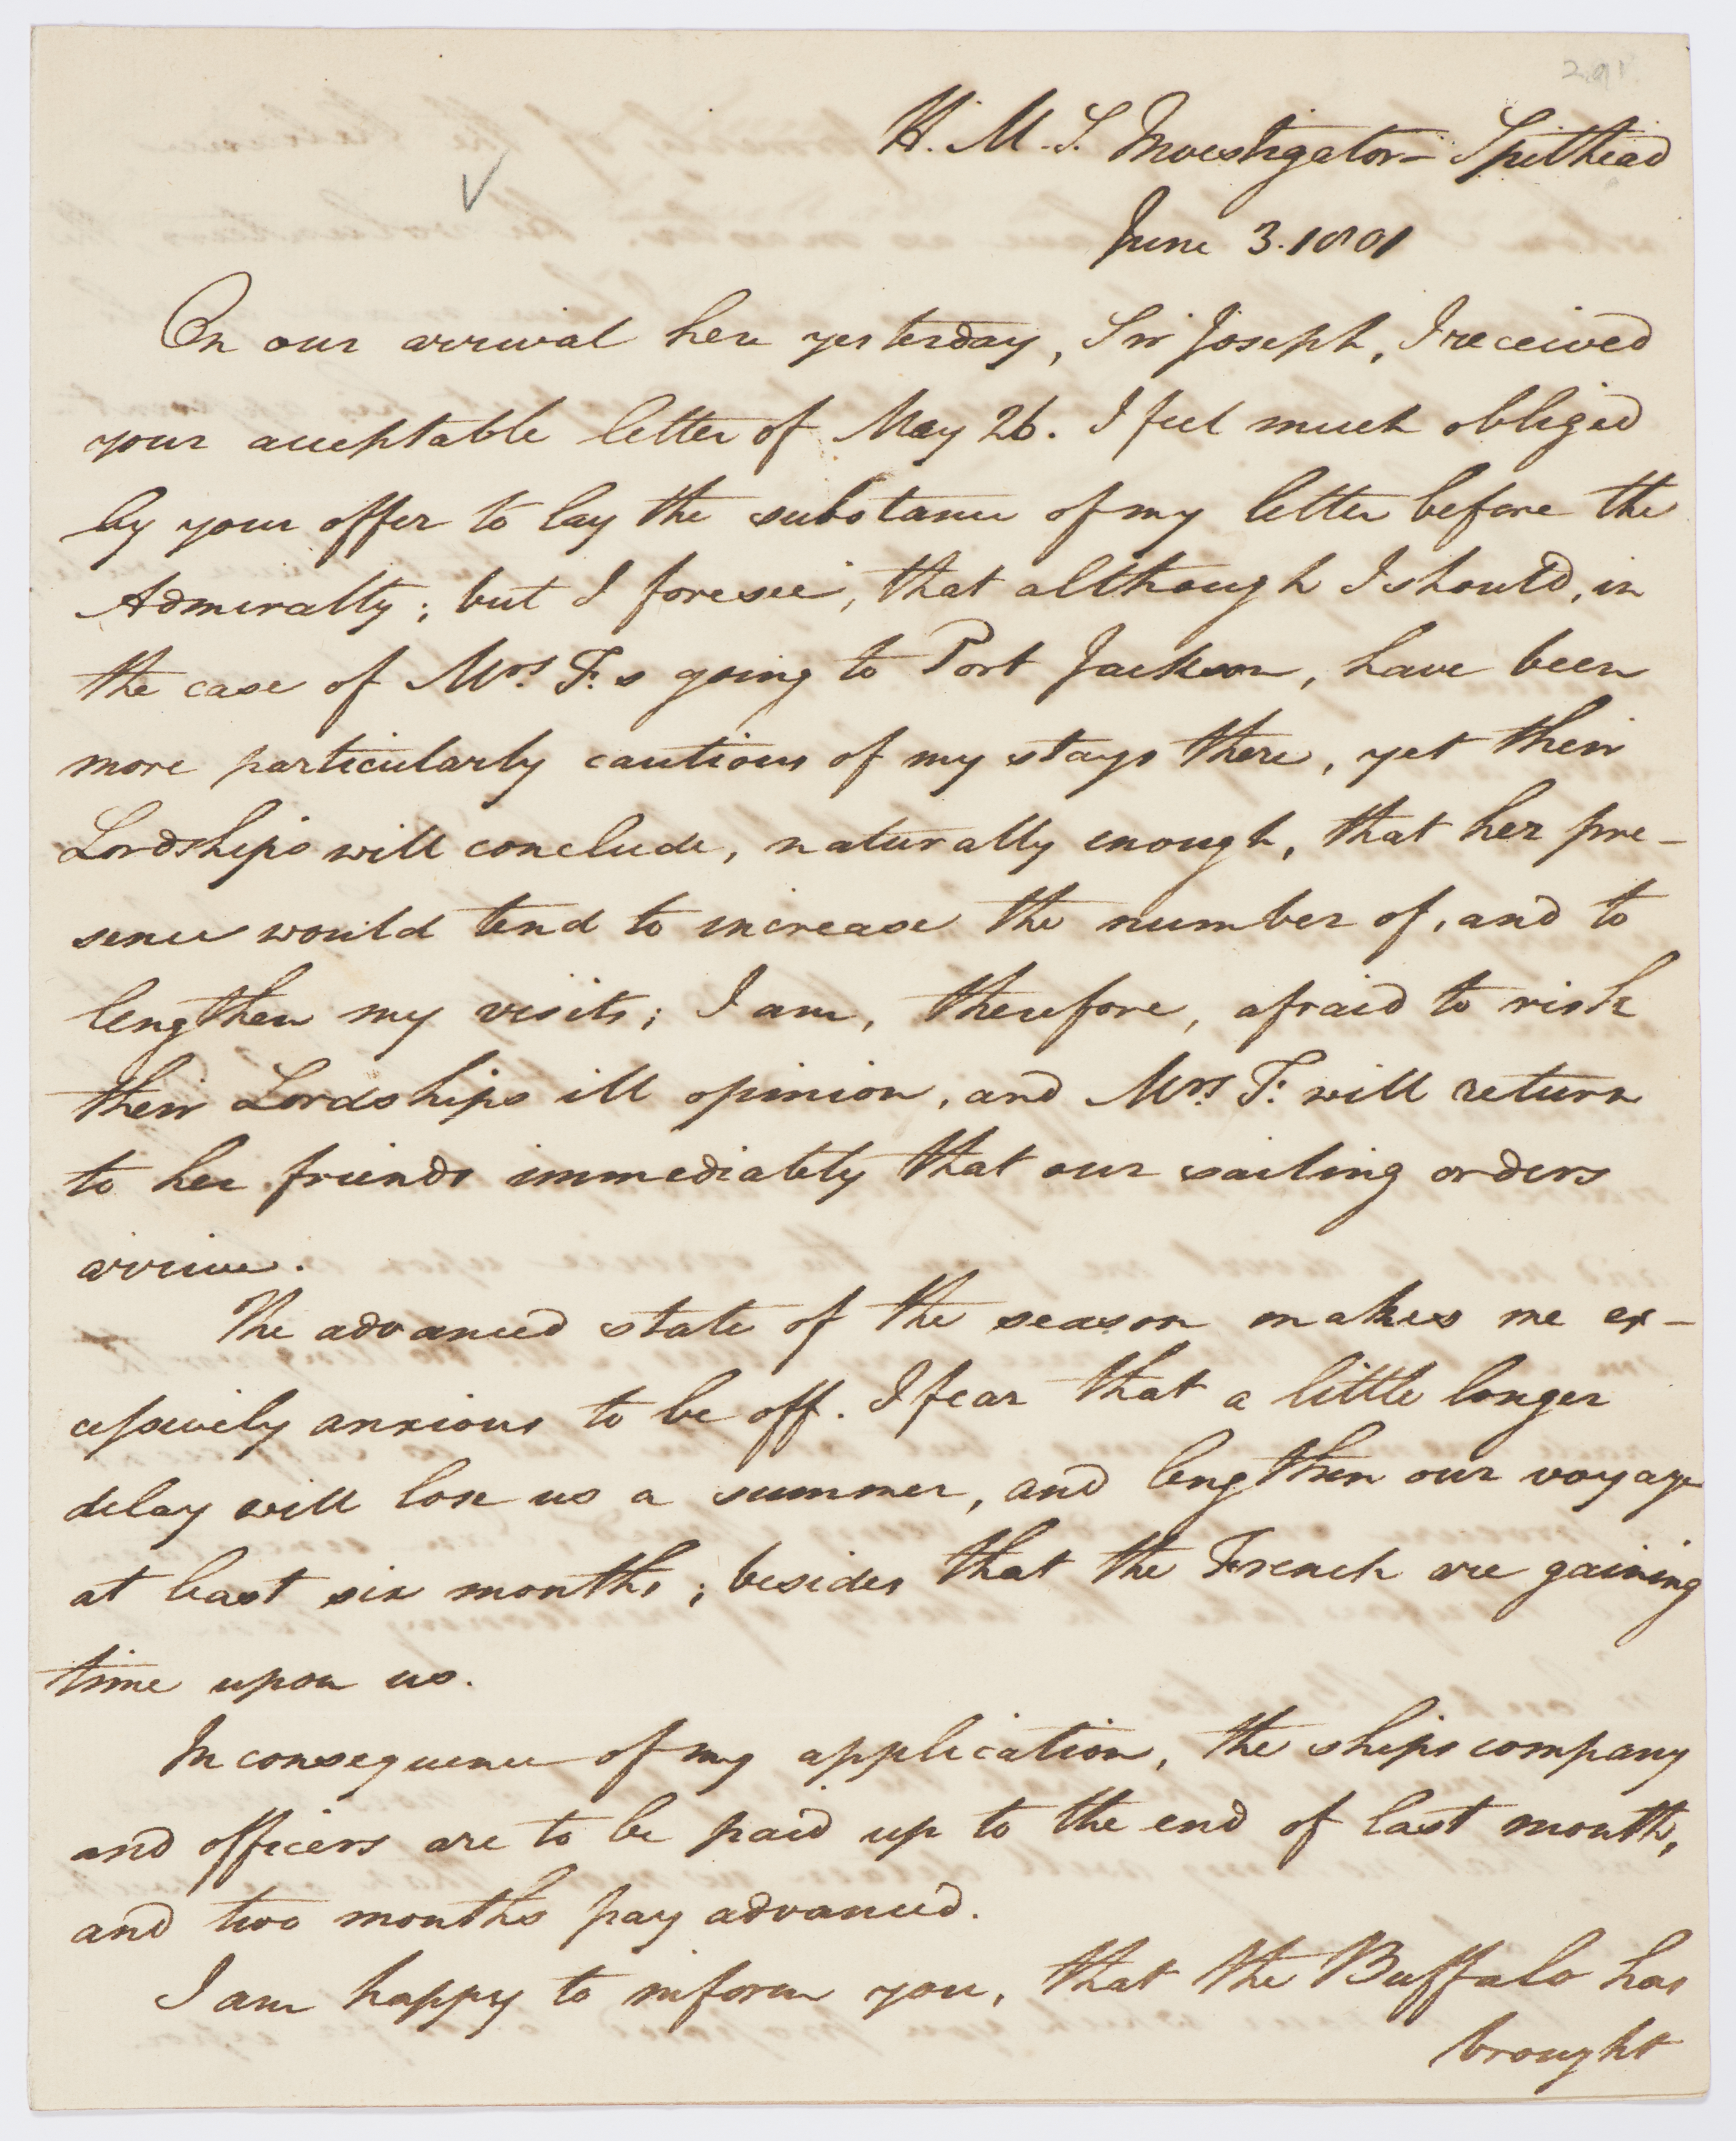 H. M. S. Investigator - Spithead
June 3. 1801
On our arrival here yesterday, Sir Joseph, I received
your acceptable letter of May 26. I feel much obliged
by your offer to lay the substance of my letter before the
Admiralty; but I foresee, that although I should, in
the case of Mrs. F.s going to Port Jackson, have been
more particularly cautious of my stays there, yet their
Lordships will conclude, naturally enough, that her pre-
sence would tend to increase the number of, and to
lengthen my visits; I am, therefore, afraid to risk
their Lordships ill opinion, and Mrs. F. will return
to her friends immediately that our sailing orders
arrive.
The advanced state of the season makes me ex-
cessively anxious to be off. I fear that a little longer
delay will lose us a summer, and lengthen our voyage
at least six months; besides that the French are gaining
time upon us.
In consequence of my application, the ships company
and officers are to be paid up to the end of last month,
and two months pay advanced.
I am happy to inform you, that the Buffalo has
brought